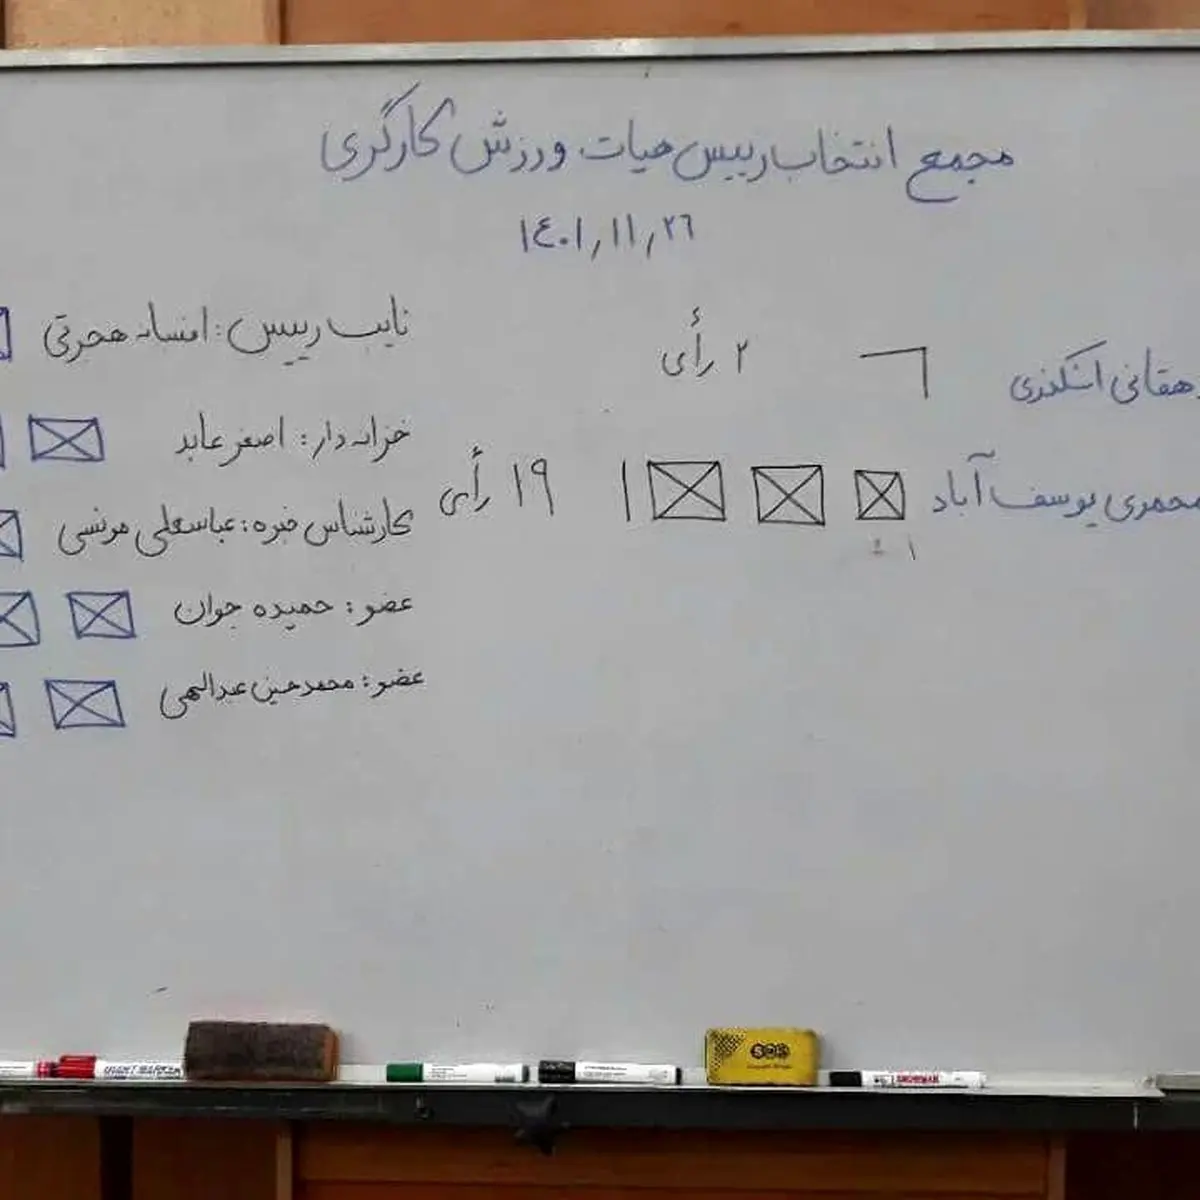 مجمع انتخاب رییس هیات ورزش کارگری
۱۴۰۱/۱۱/۲۶
دهقانی اسکندری
۲ رأی
محمدی یوسف آباد
۱۹ رأی
نایب رییس: افسانه هجرتی
خزانه دار: اصغر عابد
کارشناس خبره: عباسعلی مونسی
عضو: حمیده جوان
عضو: محمدحسین عبدالهی
SOS